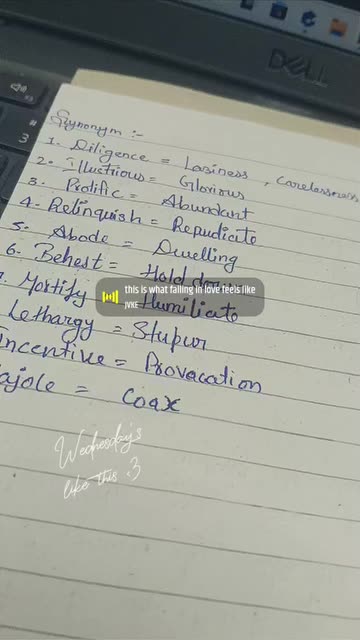 DELL
3
Synonym :-
1. Diligence = Laziness, Carelessness
2. Illustrious = Glorious
3. Prolific = Abundant
4. Relinquish = Repudiate
5. Abode = Dwelling
6. Behest = Hold down
7. Mortify = Humiliate
this is what falling in love feels like
JVKE
Lethargy = Stupor
Incentive = Provocation
ajole = Coax
Wednesday's
like this :3